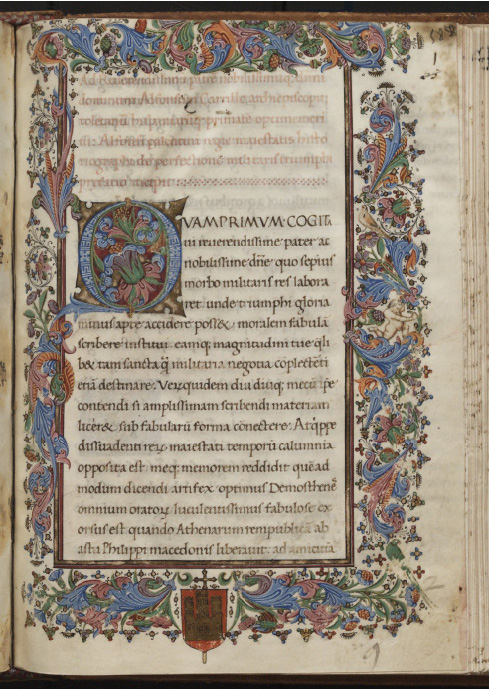 Ad reverendissimū patrē nobilissimūq; dnm̄
dominum Alfonsum Carrille archiepiscopū
toletanū hispaniarūq; primatē
Alfonsi palentini regie maiestatis histo
riographi de perfectione militaris triumphi
prefatio incipit
QVAMPRIMVM·COGITA
vi reuerendissime pater ac
nobilissime dn̄e: quo sepius
morbo militaris res labora
ret: unde triumphi gloria
minus apte accidere posset: moralem fabulā
scribere institui: eamq; magnitudini tue q̄ li
bet tam sancta q̄ militaria negotia cōplectēti
erā destinare. Verū quidem diu diuq; mecū ip̄e
contendi si amplissimam scribendi materiam
liceret sub fabularū forma conectere. Atq; ip̄e
dissuadenti rerū maiestati temporū calumnia
opposita est: meq; memorem reddidit quē ad
modum dicendi artifex optimus Demosthenes
omnium oratorū luculentissimus fabulose ex
orsus est quando Athenarum rempublicā ab
astu Philippi macedonis liberauit: ad amicitia